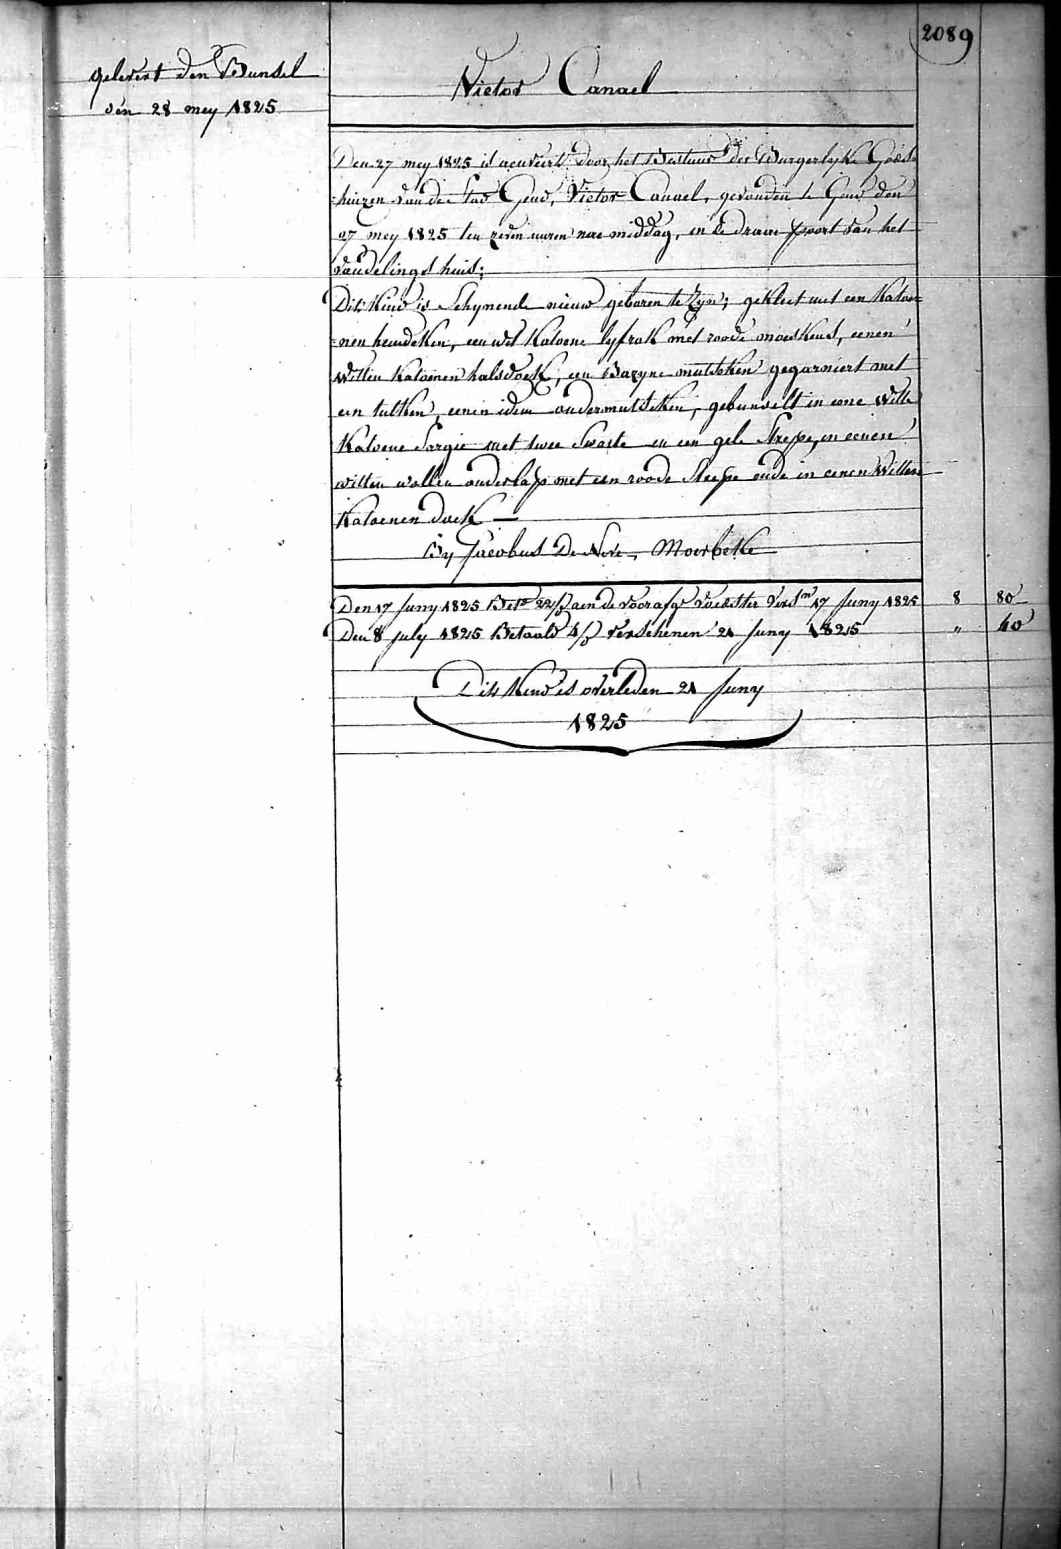 2089
gelevert den Bunsel
den 28 mey 1825
Victor Canael
Den 27 mey 1825 is aenveert door het Bestuur der Burgerlyke Gods=
=huizen van de Stad Gend, Victor Canael, gevonden te Gend den
27 mey 1825 ten zeven uuren nae middag, in de draeu poort van het
vondelings huis;
Dit Kind is Schynende nieuw geboren te zyn; gekleet met een Katoe=
=nen hemdeken, een wit Katoene lyfrok met roode moeskens, eenen
Witten Katoenen halsdoek, een Bazyne mutsken gegarniert met
een tulken, eenen idem ondermutsken, gebunselt in eene Witte
Katoene Sargie met twee Swarte en een gele Strepe, en eenen
witten wollen onderlap met een roode Strepe ende in eenen Witten
Katoenen doek —
By Jacobus De Neve, Moerbeke
Den 17 Juny 1825 Bet. 22/β aen de voorafge voedster Versn 17 Juny 1825 8 80
Den 8 July 1825 Betaald 4/β verschenen 21 Juny 1825 " 40
Dit Kind is overleden 21 Juny
1825